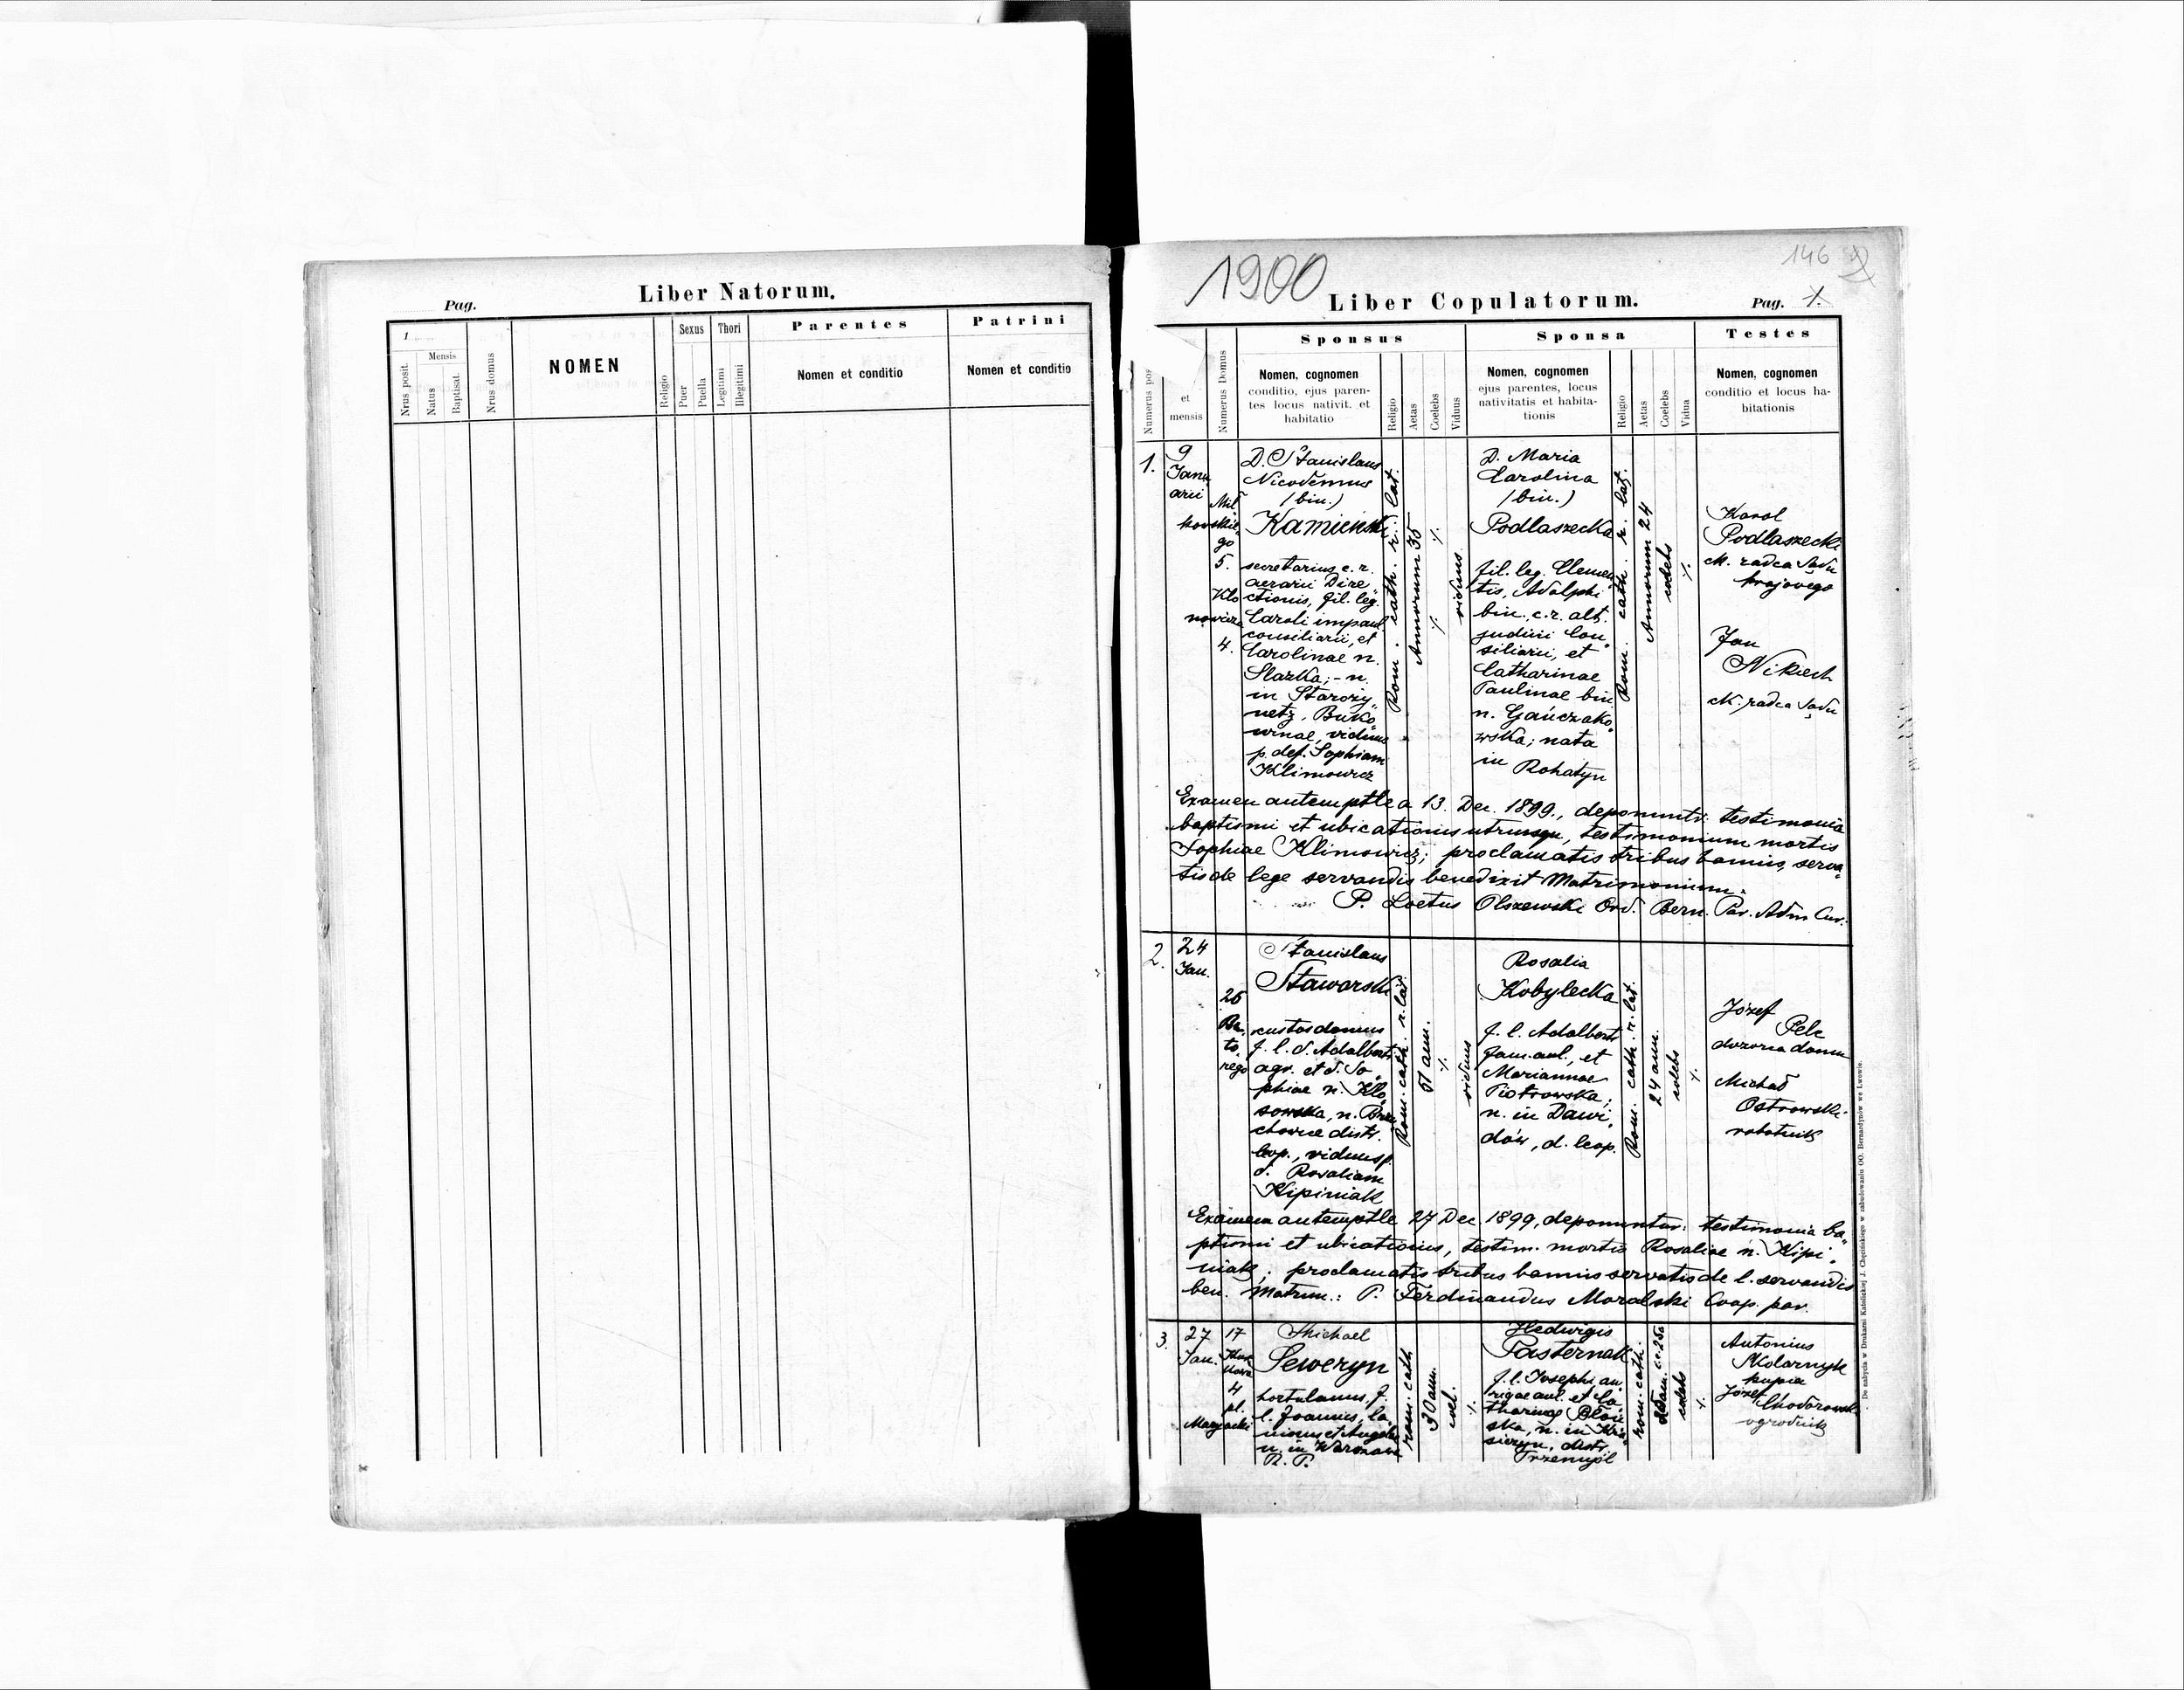 Liber Natorum.
Pag.
1
Nrus posit.
Mensis
Natus
Baptisat.
Nrus domus
NOMEN
Religio
Sexus
Puer
Puella
Thori
Legitimi
Illegitimi
Parentes
Nomen et conditio
Patrini
Nomen et conditio
1900
146
Liber Copulatorum.
Pag. 1.
Numerus pos
et
mensis
Numerus Domus
Sponsus
Nomen, cognomen
conditio, ejus paren-
tes locus nativit. et
habitatio
Religio
Aetas
Coelebs
Viduus
Sponsa
Nomen, cognomen
ejus parentes, locus
nativitatis et habita-
tionis
Religio
Aetas
Coelebs
Vidua
Testes
Nomen, cognomen
conditio et locus ha-
bitationis
1.
9
Janu
arii
Mił
kowskie
go
5.
Klo
nowicza
4.
D. Stanislaus
Nicodemus
(bin.)
Kamieński
secretarius c. r.
aerarii Dire
ctionis, fil. leg.
Caroli
consiliarii, et
Carolinae n.
Slazka; - n.
in Staroży
netz, Buko
winae, viduus
p. def. Sophiam
Klimowicz
Rom. cath. r. lat.
Annorum 35
viduus
D. Maria
Carolina
(bin.)
Podlaszecka
fil. leg. Clemen
tis, Adolphi
bin., c. r. alt.
judicii Con
siliarii, et
Catharinae
Paulinae bin
n. Gańczako
wska; nata
in Rohatyn
Rom. cath. r. lat.
Annorum 24
coelebs
Karol
Podlaszecki
ck. radca Sądu
krajowego
Jan
ck. radca Sądu
Examen a 13. Dec. 1899., deponuntr. testimonia
baptismi et ubicationis utriusque, testimonium mortis
Sophiae Klimowicz; proclamatis tribus bannis, serva
tis de lege servandis benedixit Matrimonium.
P. Laetus Olszewski Ord. Bern. Par. Adm Cur.
2.
24
Jan.
26
Ba.
to.
rego
Stanislaus
Staworski
custos domus
f. l. d. Adalberti
agr. et d. So
phiae n. Kło
sowska, n.
distr.
leop., viduus p.
d. Rosaliam
Kipiniak
Rom. cath. r. lat.
51 ann.
viduus
Rosalia
Kobylecka
f. l. Adalberti
et
Mariannae
Piotrowska;
n. in Dawi
dów, d. leop.
Rom. cath. r. lat.
24 ann.
coelebs
Józef
Pelc
dozorca domu
Michał
Ostrowski
robotnik
Examen 27 Dec 1899, deponuntur: testimonia ba
ptismi et ubicationis, testim. mortis Rosaliae n. Kipi
niak; proclamatis tribus bannis servatis de l. servandis
ben. Matrim.: P. Ferdinandus Moralski Coop. par.
3.
27
Jan.
17
4
pl.
Maryacki
Michael
Seweryn
hortulanus, f.
l. Joannis, la
n. in Warszawa
R. P.
rom. cath
30 ann.
coel.
Hedwigis
Pasternak
f. l. Josephi au
rigae aul. et Ca
tharinae
ska, n. in Kra
siczyn, distr.
Przemyśl
rom. cath.
coelebs
Antonius
kupia
Józef
Chodorowski
ogrodnik
Do nabycia w Drukarni Katolickiej J. Chęcińskiego w zabudowaniu OO. Bernardynów we Lwowie.